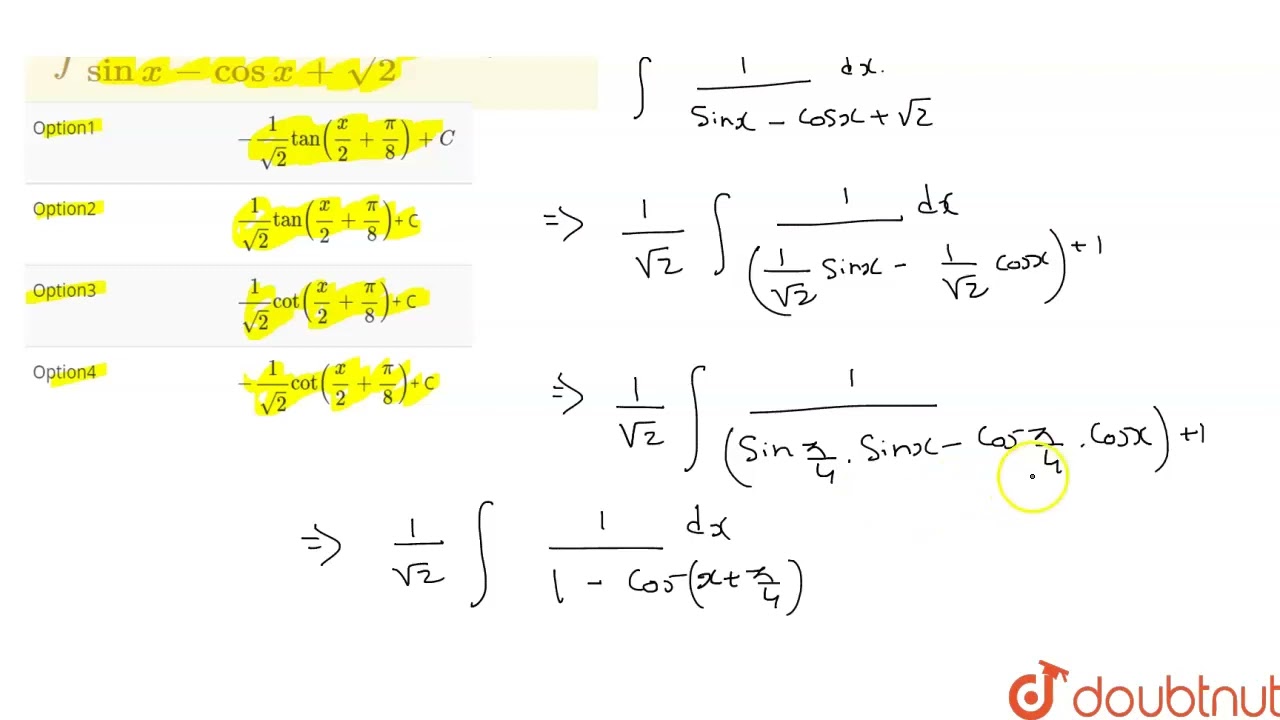 ∫ sin x − cos x + √2
Option1 −1/√2 tan(x/2 + π/8) + C
Option2 1/√2 tan(x/2 + π/8) + C
Option3 1/√2 cot(x/2 + π/8) + C
Option4 −1/√2 cot(x/2 + π/8) + C
∫ 1/(Sinx − Cosx + √2) dx.
=> 1/√2 ∫ 1/((1/√2 Sinx − 1/√2 Cosx) + 1) dx
=> 1/√2 ∫ 1/((Sin π/4 . Sinx − Cos π/4 . Cosx) + 1)
=> 1/√2 ∫ 1/(1 − Cos(x + π/4)) dx
doubtnut